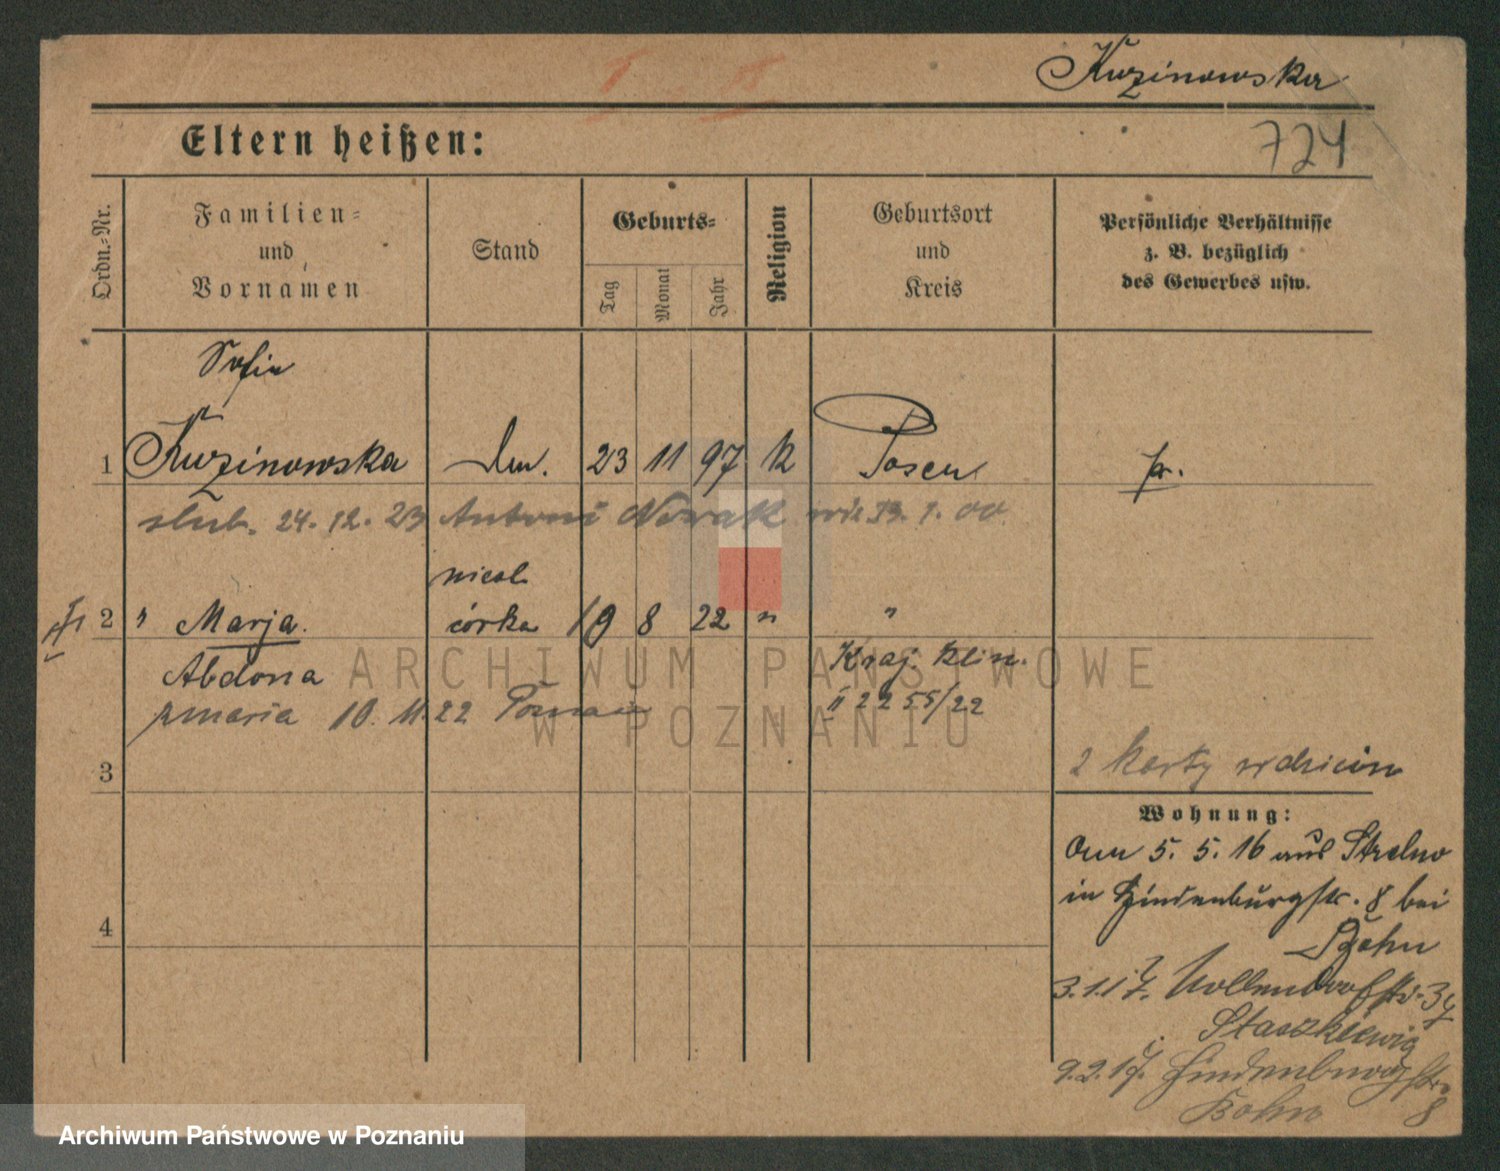 Kuzinowska
724
Eltern heißen:
Ordn.-Nr.
Familien- und Vornamen
Stand
Geburts-
Tag
Monat
Jahr
Religion
Geburtsort und Kreis
Persönliche Verhältnisse z. B. bezüglich des Gewerbes usw.
Sofia
1 Kuzinowska 23 11 97 k Posen
ślub. 24. 12. 23 Antoni Nowak
nieśl.
2 " Marja córka 19 8 22 " "
Abdona Kraj. klin.
zmarła 10. 11. 22 Poznań II 2255/22
3
2 karty
Wohnung:
5. 5. 16 aus Strelno
in Hindenburgstr. 8 bei
4
3.1.17. Nollendorfstr. 37
Staszkiewicz
9.2.17. Hindenburgstr. 8
ARCHIWUM PAŃSTWOWE
W POZNANIU
Archiwum Państwowe w Poznaniu